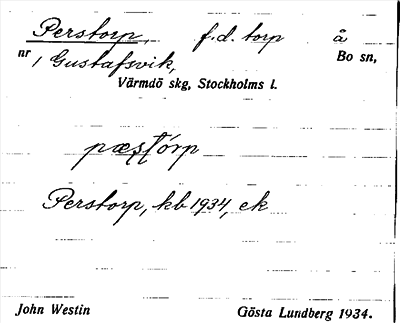 Perstorp, f.d. torp å
nr 1 Gustafsvik, Bo sn,
Värmdö skg, Stockholms l.
pæʂʈórp
Perstorp, kb 1934, ek
John Westin Gösta Lundberg 1934.